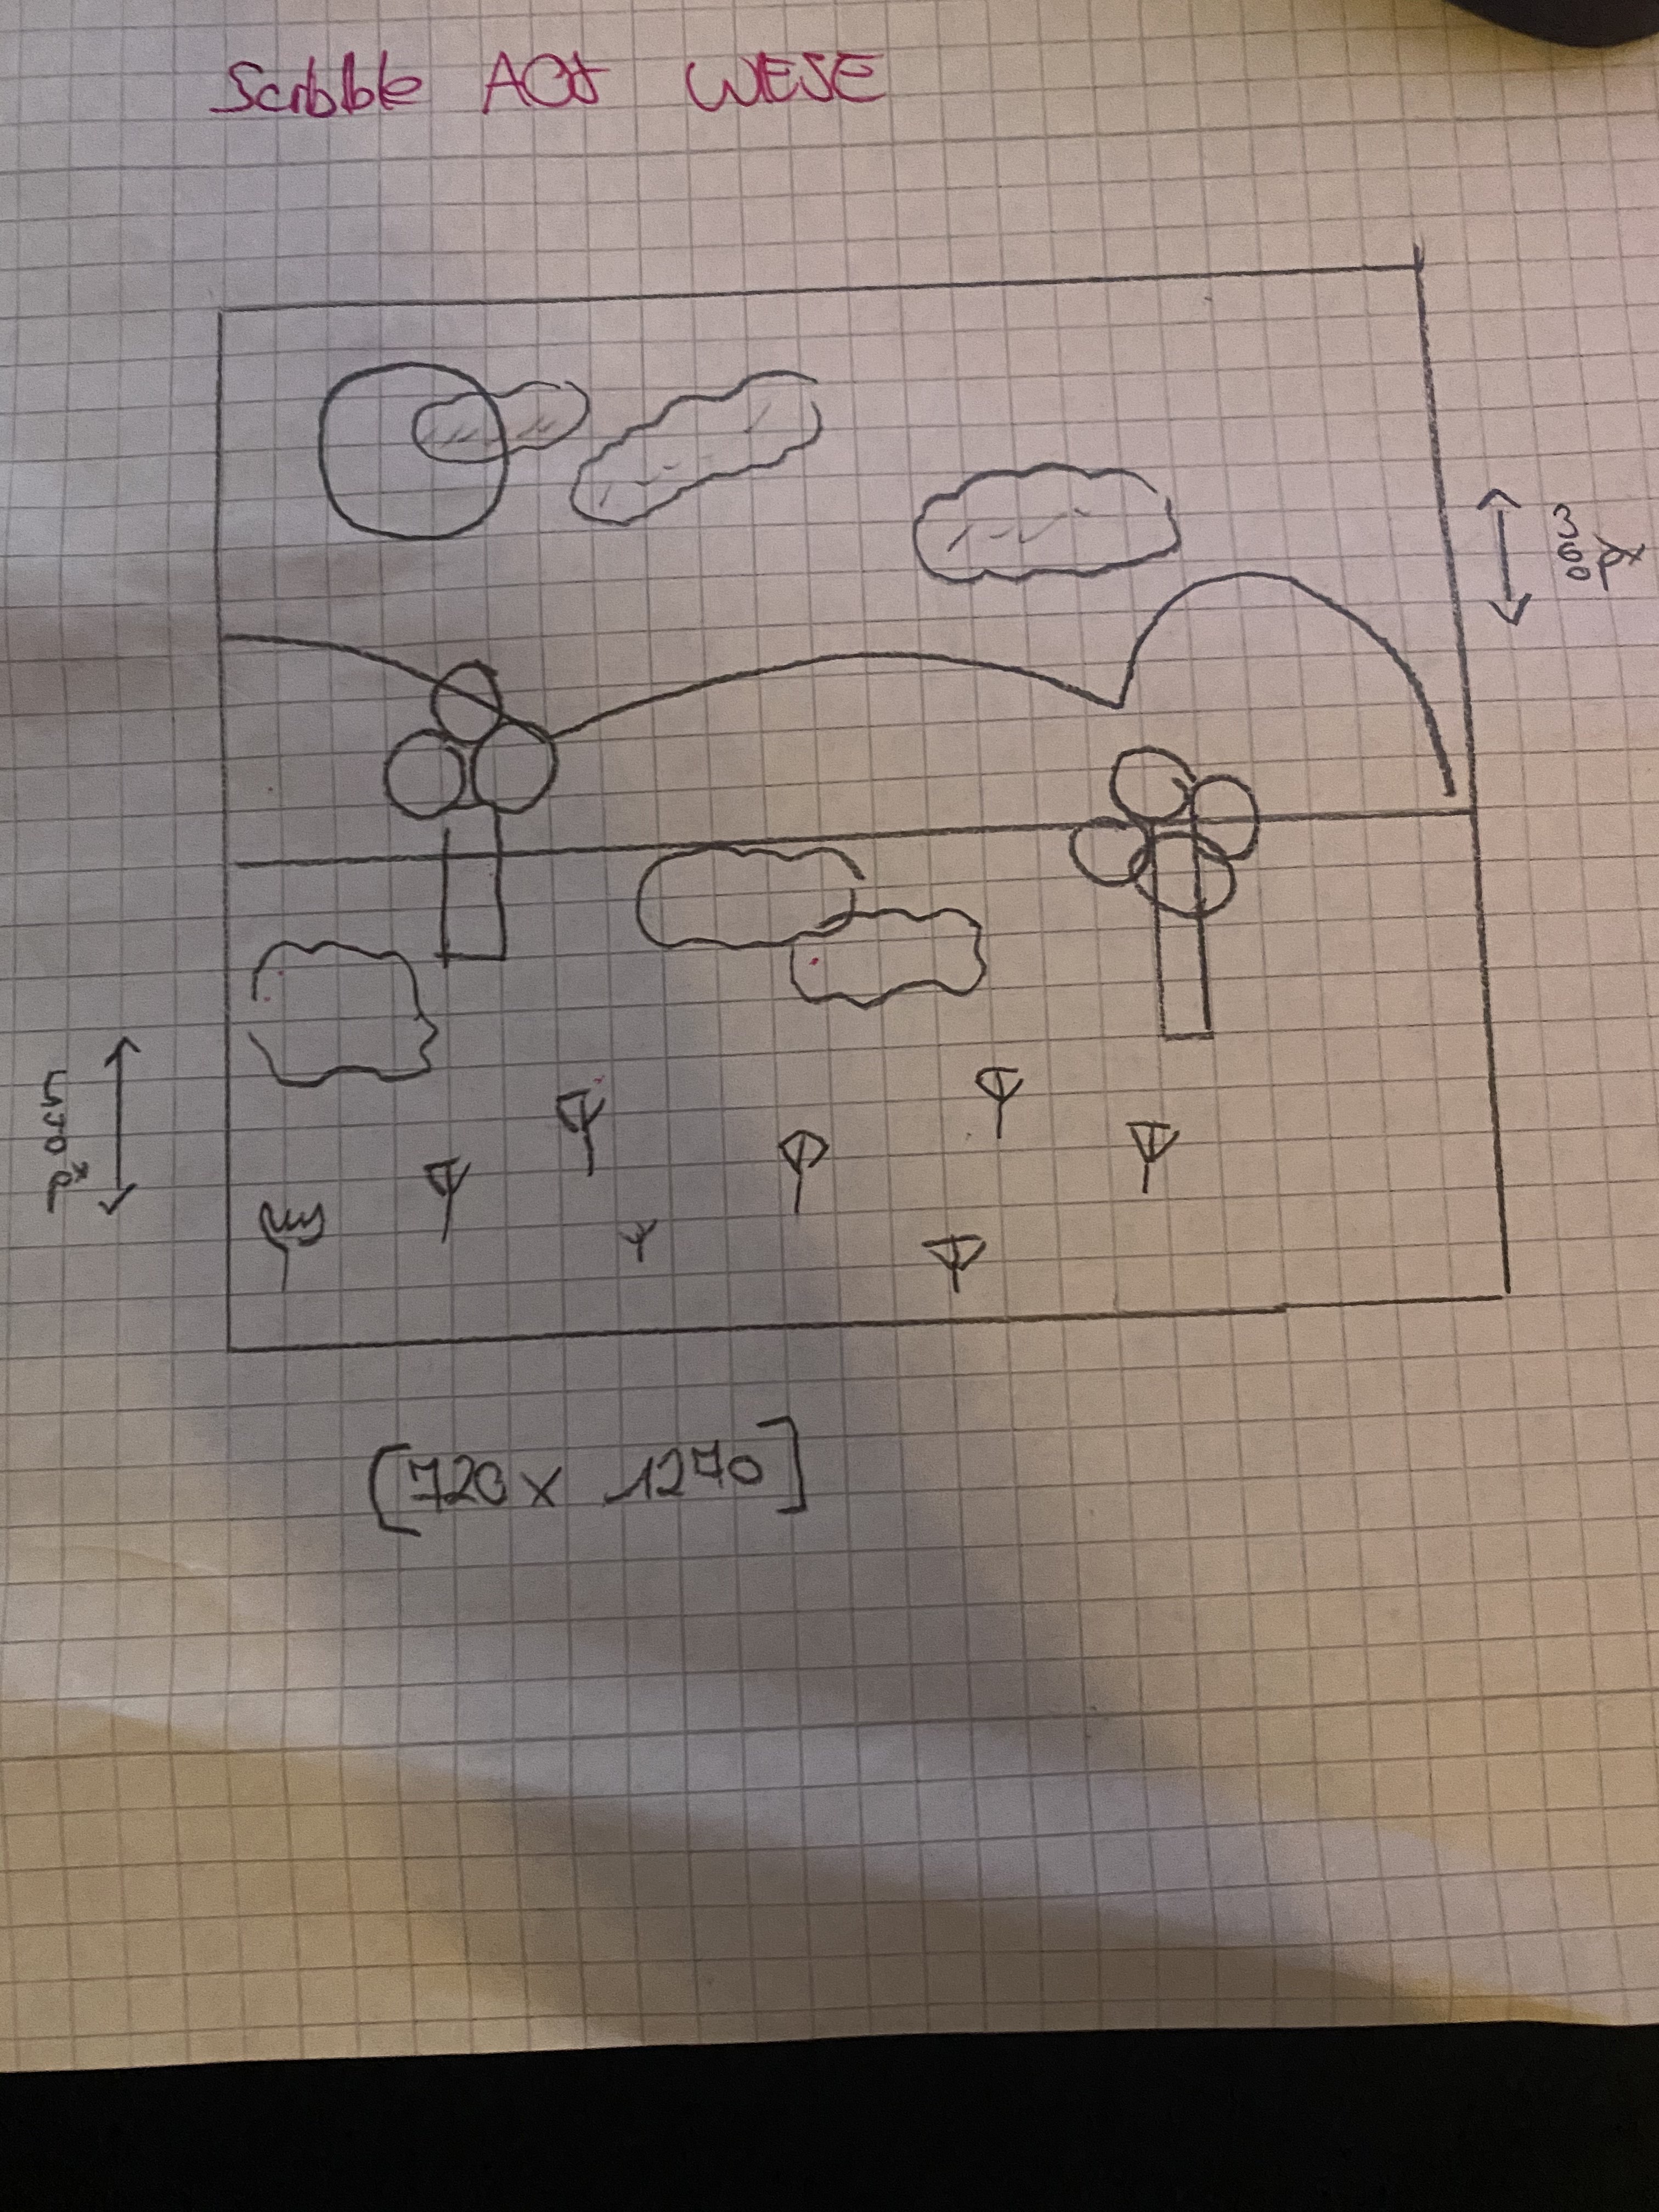 Scribble AO1 WIESE
360 px
540 px
[720 x 1270]